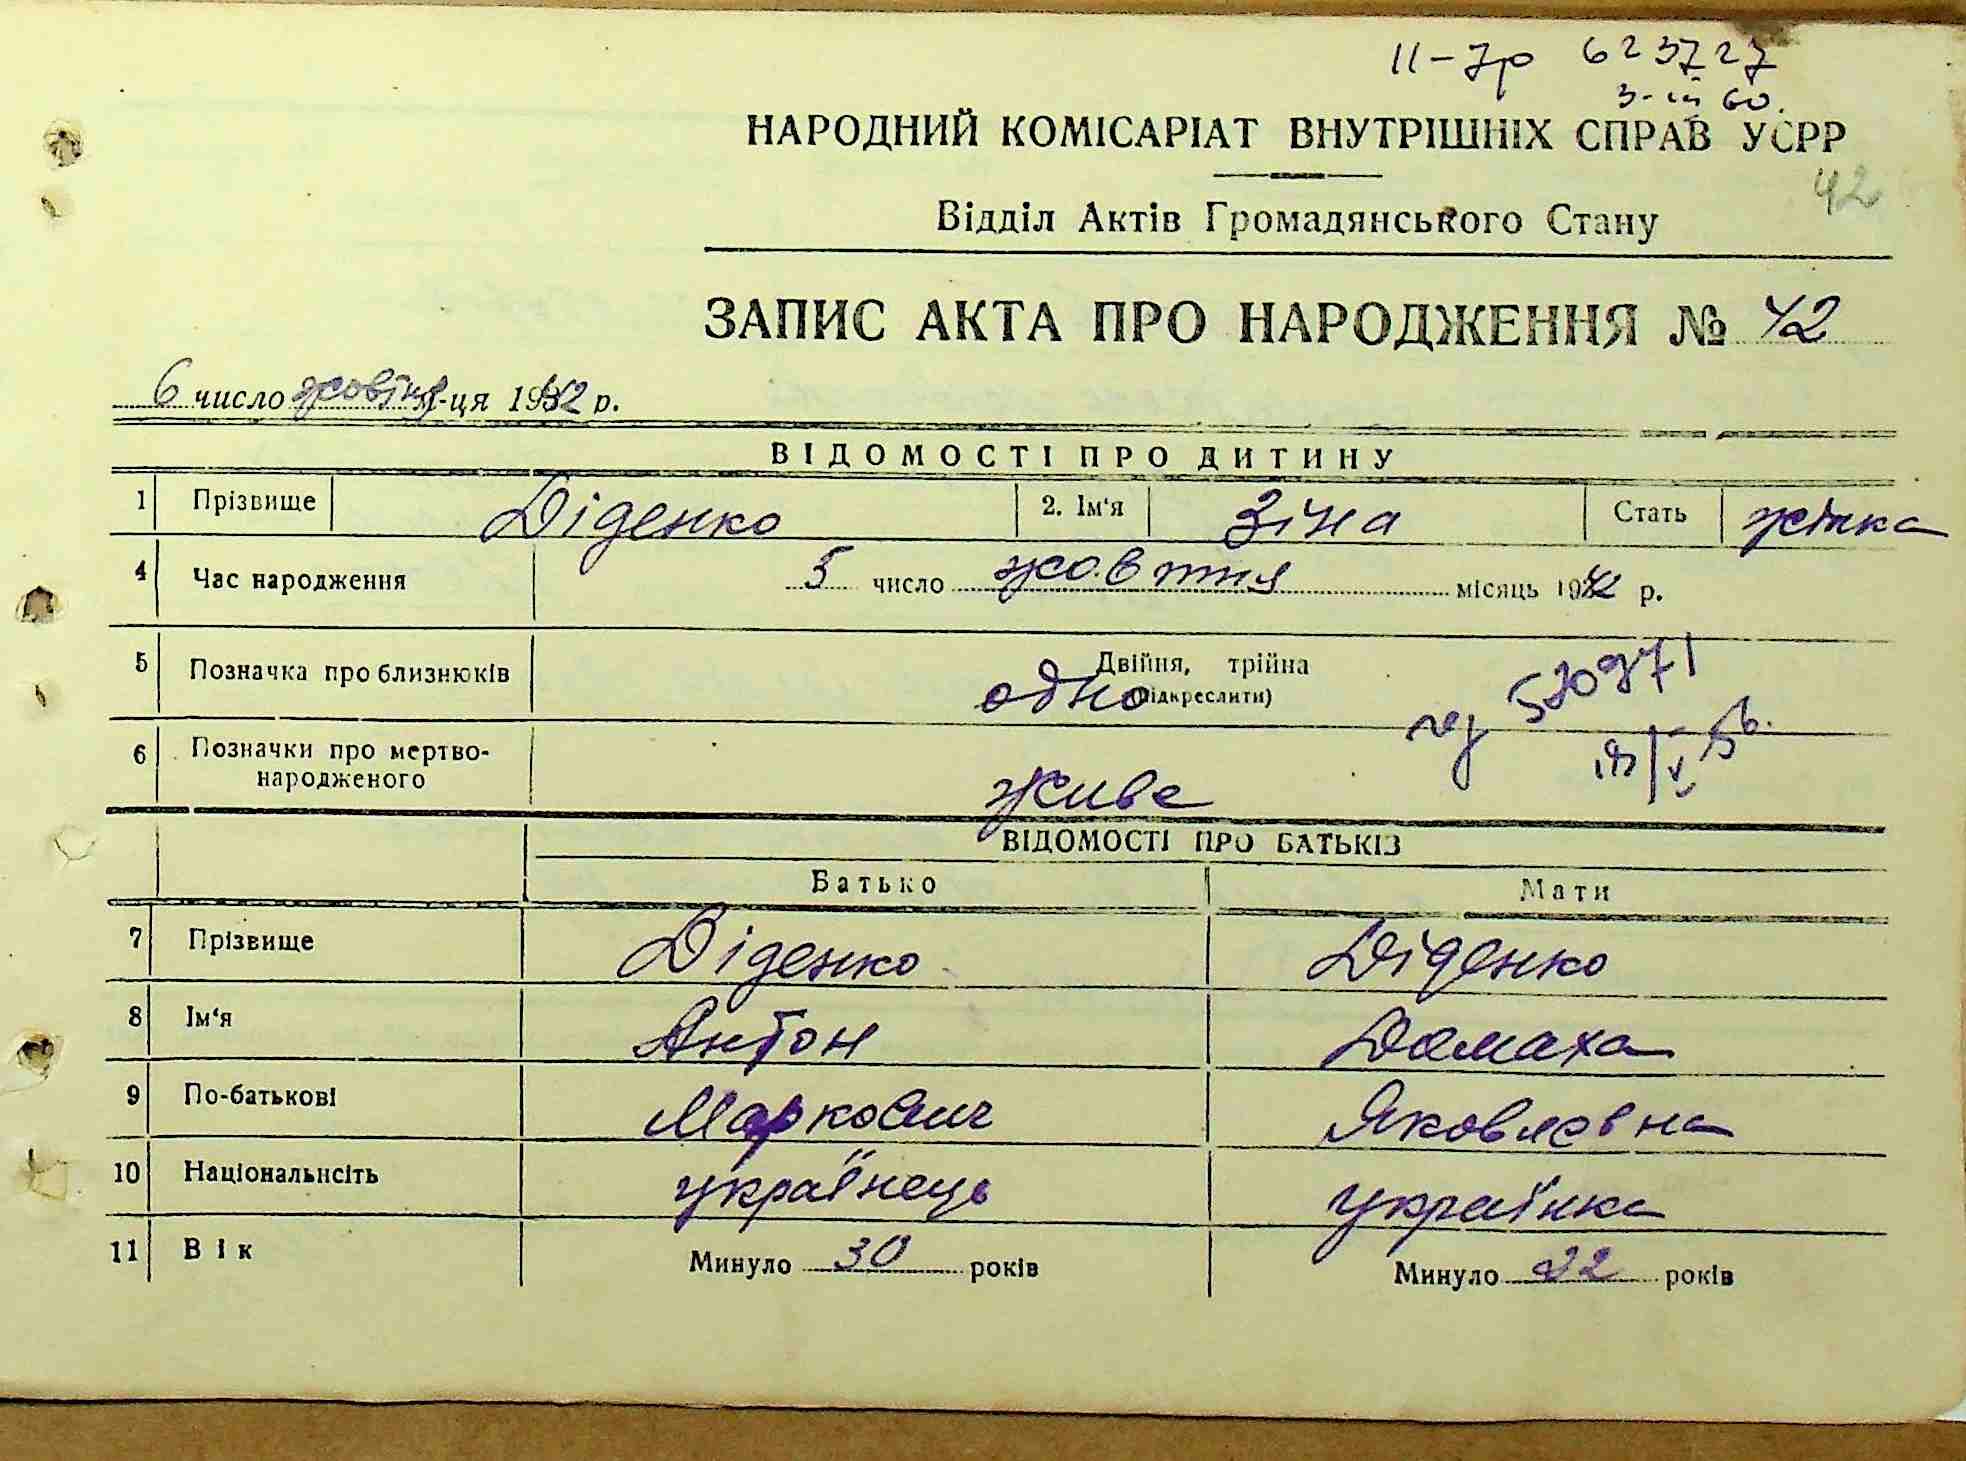 II-УР 623727
3-III 60.
НАРОДНИЙ КОМІСАРІАТ ВНУТРІШНІХ СПРАВ УСРР
42
Відділ Актів Громадянського Стану
ЗАПИС АКТА ПРО НАРОДЖЕННЯ № 42
6 число жовтня м-ця 1942 р.
ВІДОМОСТІ ПРО ДИТИНУ
1 Прізвище Діденко 2. Ім'я Зіна Стать жінка
4 Час народження 5 число жовтня місяць 1942 р.
5 Позначка про близнюків Двійня, трійна
одно (підкреслити)
520971
6 Позначки про мертво-
народженого живе
ВІДОМОСТІ ПРО БАТЬКІВ
Батько Мати
7 Прізвище Діденко Діденко
8 Ім'я Антон Домаха
9 По-батькові Маркович Яковлевна
10 Національнсіть українець українка
11 Вік Минуло 30 років Минуло 32 років